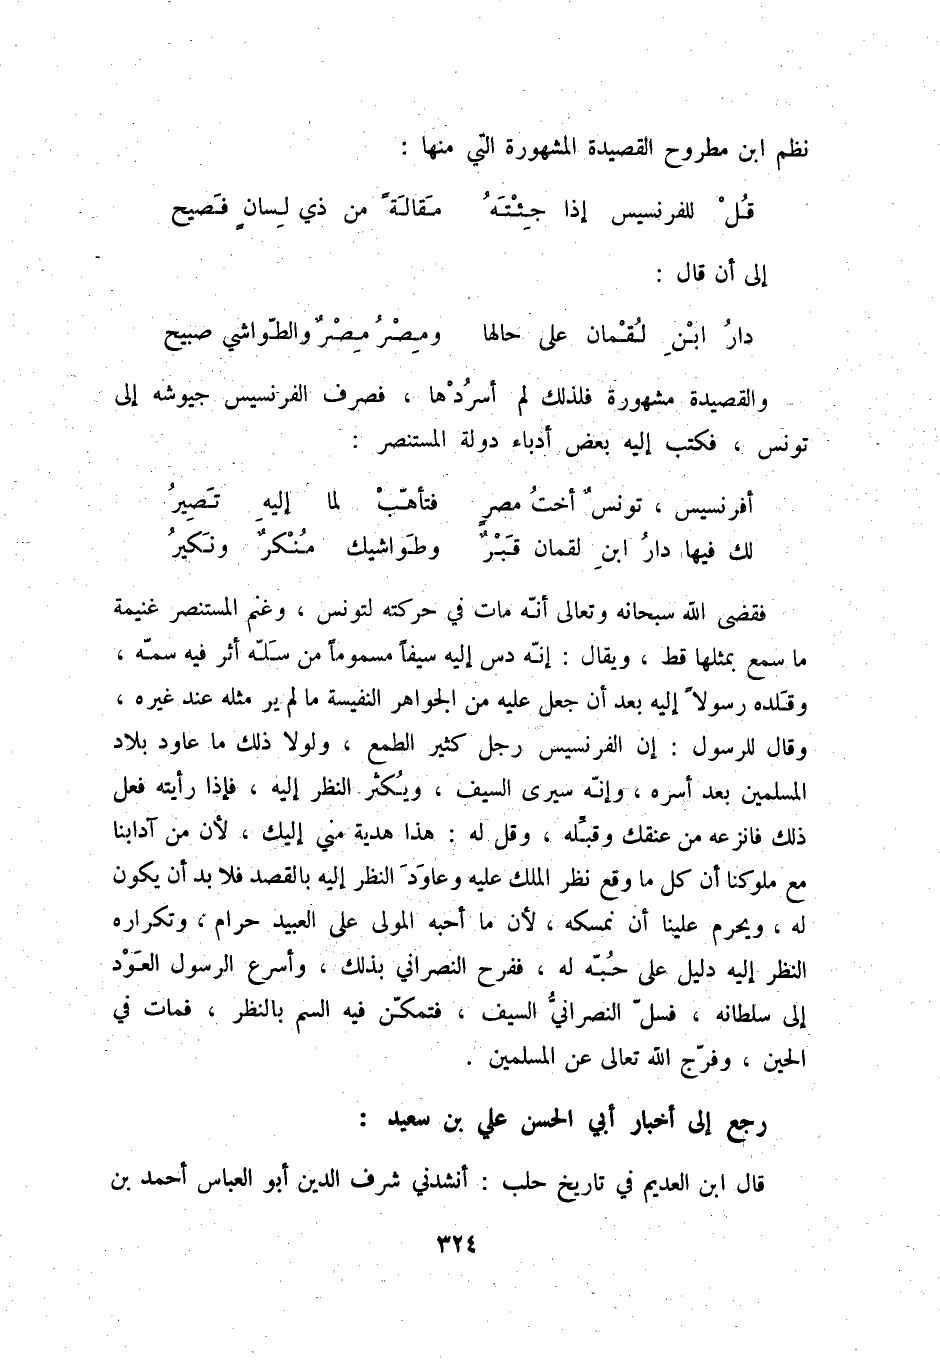 نظم ابن مطروح القصيدة المشهورة التّي منها :
قُلْ للفرنسيس إذا جِئْتَهُ مَقالَةً من ذي لِسانٍ فَصيح
إلى أن قال :
دارُ ابْنِ لُقْمان على حالها ومِصْرُ مِصْرٌ والطّواشي صبيح
والقصيدة مشهورة فلذلك لم أسرُدْها ، فصرف الفرنسيس جيوشه إلى
تونس ، فكتب إليه بعض أدباء دولة المستنصر :
أفرنسيس ، تونسٌ أختُ مصرٍ فتأهّبْ لما إليهِ تَصِيرُ
لك فيها دارُ ابنِ لقمان قَبْرٌ وطَواشيك مُنْكرٌ ونَكيرُ
فقضى الله سبحانه وتعالى أنّه مات في حركته لتونس ، وغنم المستنصر غنيمة
ما سمع بمثلها قط ، ويقال : إنّه دس إليه سيفاً مسموماً من سَلّه أثر فيه سمّه ،
وقلّده رسولاً إليه بعد أن جعل عليه من الجواهر النفيسة ما لم ير مثله عند غيره ،
وقال للرسول : إن الفرنسيس رجل كثير الطمع ، ولولا ذلك ما عاود بلاد
المسلمين بعد أسره ، وإنّه سيرى السيف ، ويُكثر النظر إليه ، فإذا رأيته فعل
ذلك فانزعه من عنقك وقبّله ، وقل له : هذا هدية مني إليك ، لأن من آدابنا
مع ملوكنا أن كل ما وقع نظر الملك عليه وعاوَدَ النظر إليه بالقصد فلا بد أن يكون
له ، ويحرم علينا أن نمسكه ، لأن ما أحبه المولى على العبيد حرام ، وتكراره
النظر إليه دليل على حُبّه له ، ففرح النصراني بذلك ، وأسرع الرسول العَوْد
إلى سلطانه ، فسلّ النصرانيُّ السيف ، فتمكّن فيه السم بالنظر ، فمات في
الحين ، وفرّج الله تعالى عن المسلمين .
رجع إلى أخبار أبي الحسن علي بن سعيد :
قال ابن العديم في تاريخ حلب : أنشدني شرف الدين أبو العباس أحمد بن
٣٢٤